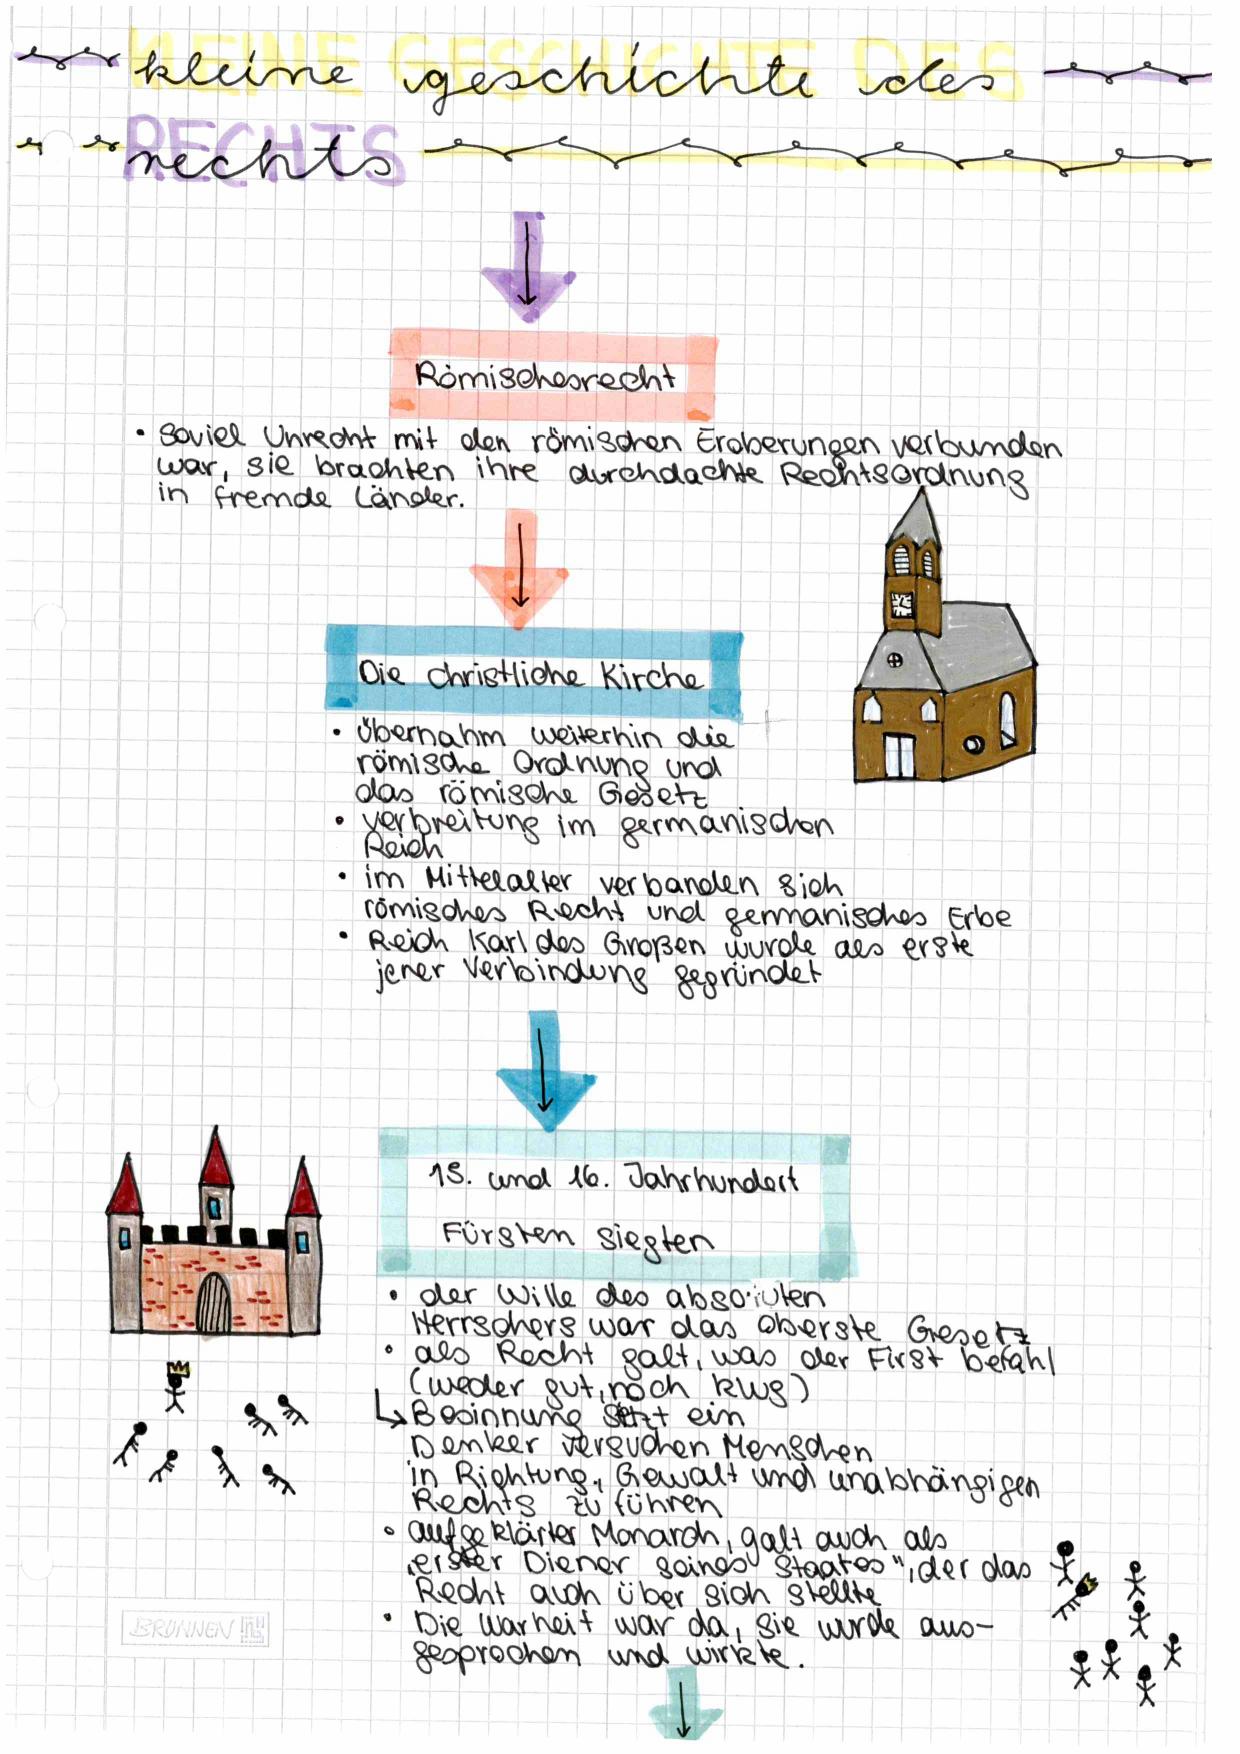 kleine geschichte des
rechts
Römischesrecht
• soviel Unrecht mit den römischen Eroberungen verbunden
war, sie brachten ihre durchdachte Rechtsordnung
in fremde Länder.
Die christliche Kirche
• übernahm weiterhin die
römische Ordnung und
das römische Gesetz
• verbreitung im germanischen
Reich
• im Mittelalter verbanden sich
römisches Recht und germanisches Erbe
• Reich Karl des Großen wurde als erste
jener Verbindung gegründet
15. und 16. Jahrhundert
Fürsten siegten
• der Wille des absoluten
Herrschers war das oberste Gesetz
• als Recht galt, was der First befahl
(weder gut, noch klug)
↳ Besinnung setzt ein
Denker versuchen Menschen
in Richtung, Gewalt und unabhängigen
Rechts zu führen
• aufgeklärter Monarch, galt auch als
„erster Diener seines Staates", der das
Recht auch über sich stellte
• Die Warheit war da, sie wurde aus-
gesprochen und wirkte.
BRUNNEN